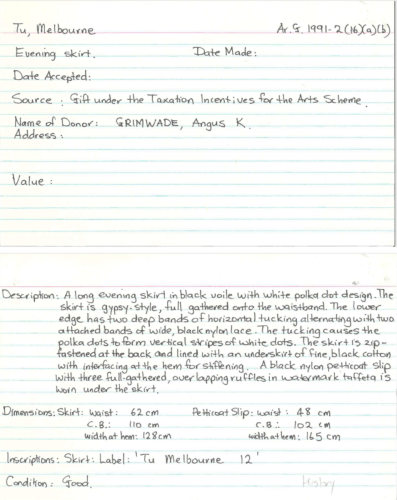 Tu, Melbourne Ar.G. 1991-2(16)(a)(b)
Evening skirt. Date Made:
Date Accepted:
Source : Gift under the Taxation Incentives for the Arts Scheme.
Name of Donor: GRIMWADE, Angus K.
Address :
Value :
Description: A long evening skirt in black voile with white polka dot design. The
skirt is gypsy-style, full gathered onto the waistband. The lower
edge has two deep bands of horizontal tucking alternating with two
attached bands of wide, black nylon lace. The tucking causes the
polka dots to form vertical stripes of white dots. The skirt is zip-
fastened at the back and lined with an underskirt of fine, black cotton
with interfacing at the hem for stiffening. A black nylon petticoat slip
with three full-gathered, overlapping ruffles in watermark taffeta is
worn under the skirt.
Dimensions: Skirt: waist : 62 cm Petticoat Slip: waist : 48 cm
C.B.: 110 cm C.B.: 102 cm
width at hem: 128 cm width at hem: 165 cm
Inscriptions: Skirt: Label: 'Tu Melbourne 12'
Condition: Good.